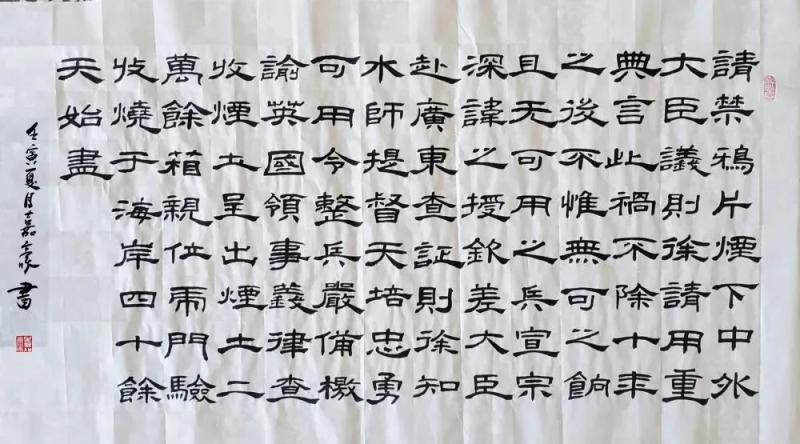 請禁鴉片煙下中外
大臣議則徐請用重
典言此禍不除十年
之後不惟無可之餉
且无可用之兵宣宗
深諱之授欽差大臣
赴廣東查証則徐知
水師提督天培忠勇
可用令整兵嚴備檄
諭英國領事義律查
收煙土呈出煙土二
萬餘箱親位虎門驗
收燒于海岸四十餘
天始盡
壬寅夏月嘉豪書